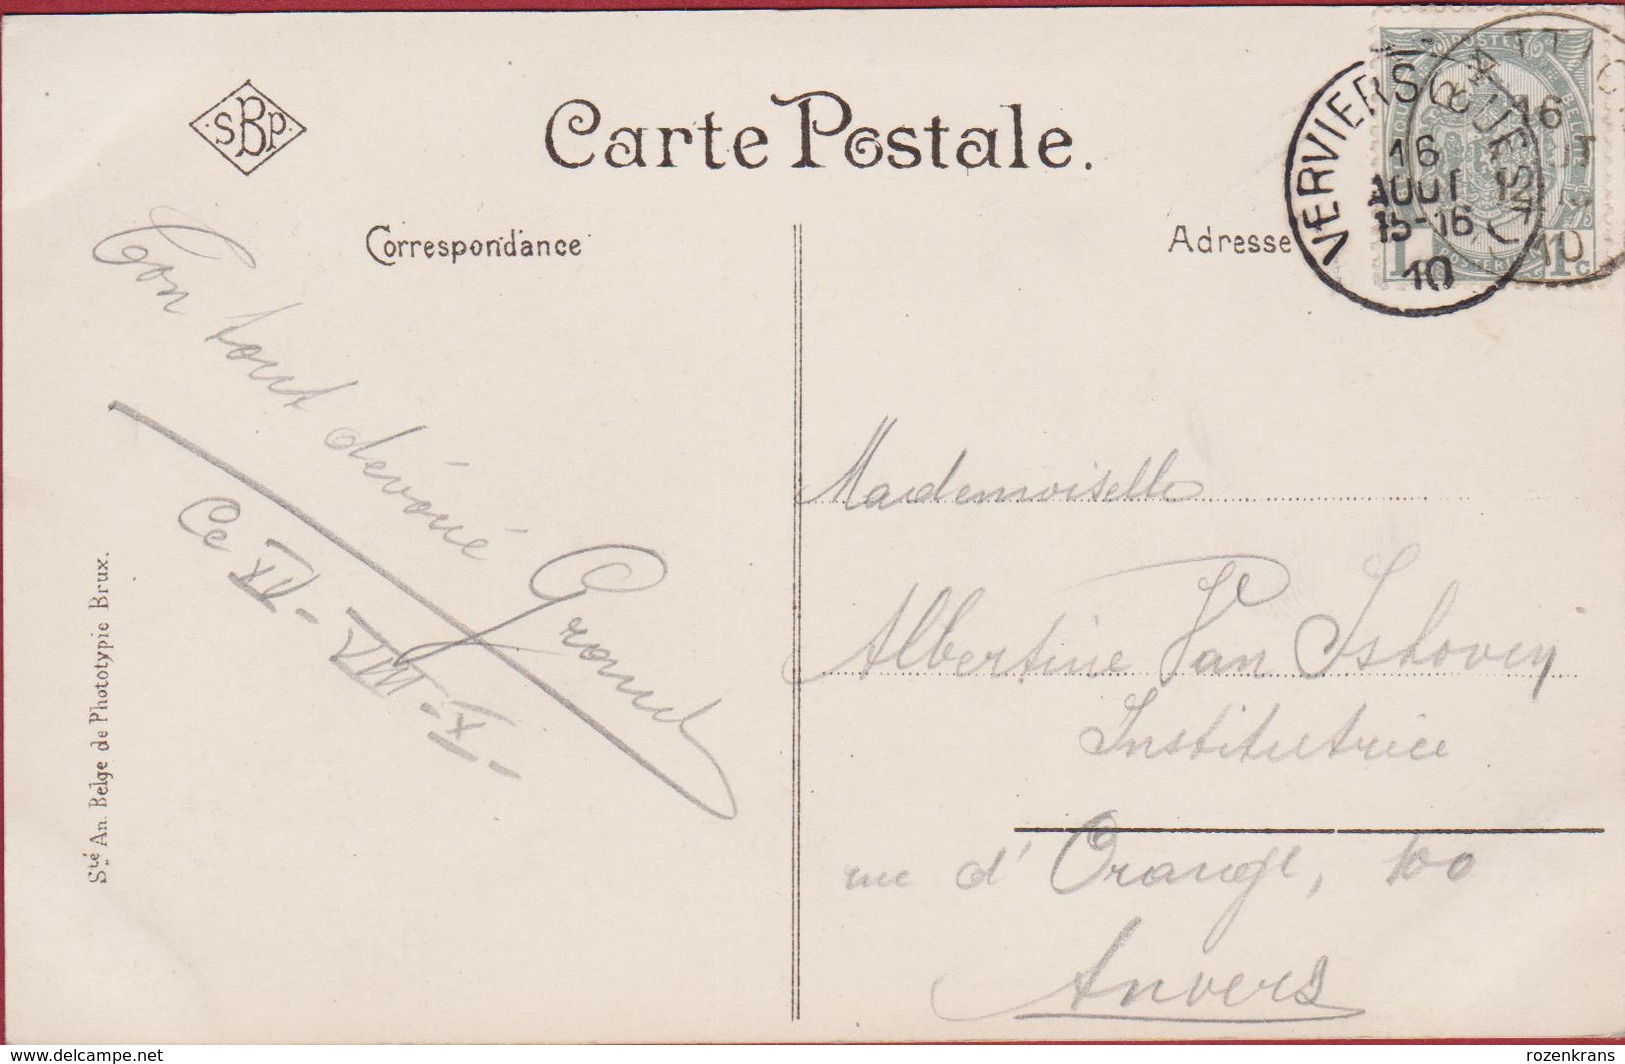 SBP
Carte Postale.
Correspondance
Adresse
POSTES
VERVIERS
16
AOUT
15-16
10
16
10
1
1c
Ton tout dévoué
Ce XV-VIII-X-
Mademoiselle
Albertine Van
Institutrice
rue d'Orange, 100
Anvers
Sté An. Belge de Phototypie Brux.
https://www.delcampe.net
rozenkrans